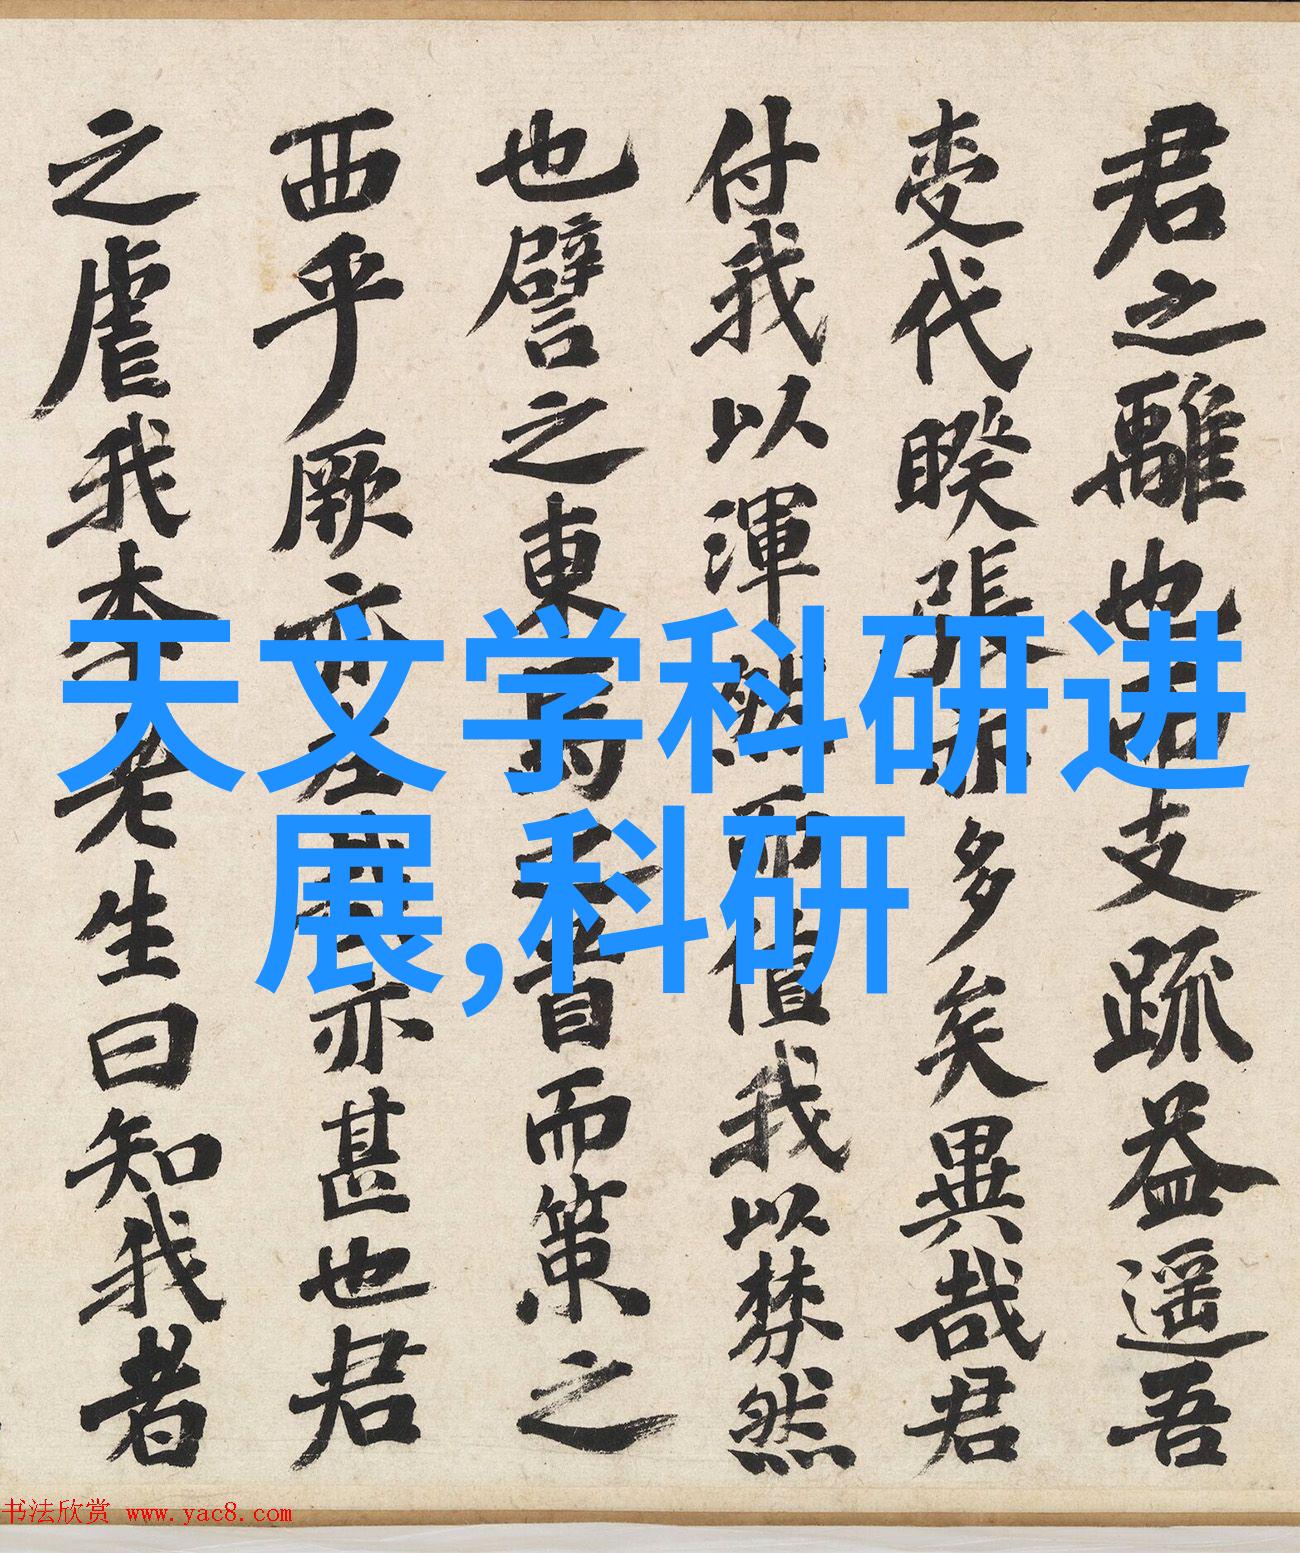 君之離也四支疏益遥吾
变代暌張亦多矣異哉君
付我以渾然而值我以棼然
也譬之東馬之首而策之
西乎厥亦左哉亦甚也君
之虐我李老生曰知我者
天文学科研进
展,科研
书法欣赏 www.yac8.com